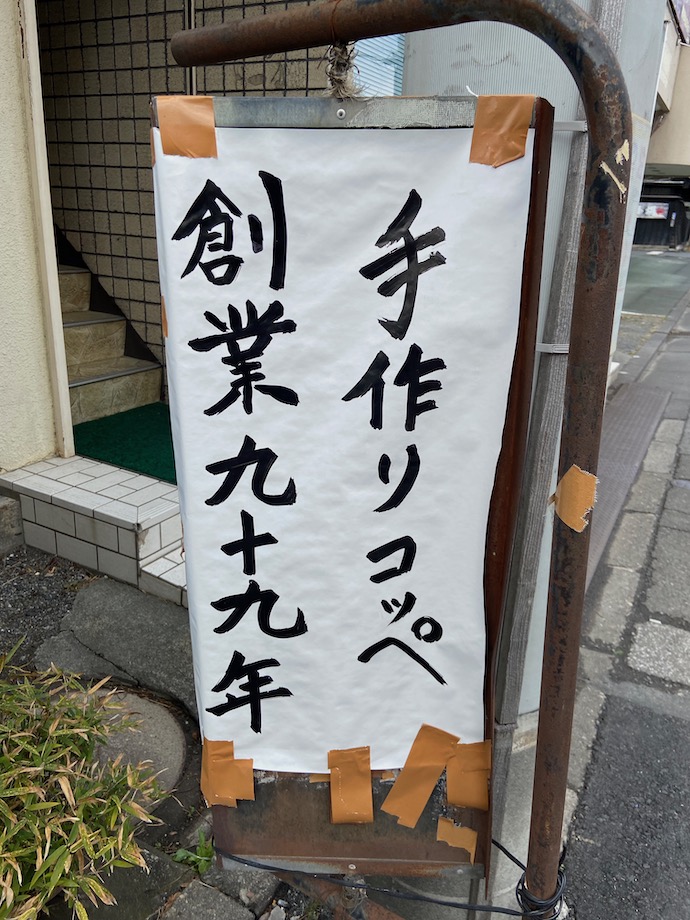 手作りコッペ
創業九十九年